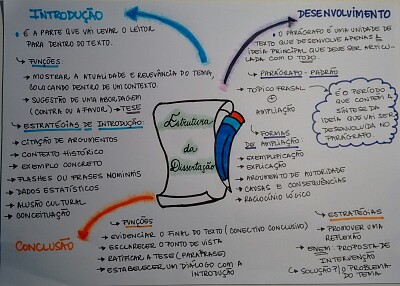 INTRODUÇÃO
• É A PARTE QUE VAI LEVAR O LEITOR
PARA DENTRO DO TEXTO.
↳ FUNÇÕES
→ MOSTRAR A ATUALIDADE E RELEVÂNCIA DO TEMA,
COLOCANDO DENTRO DE UM CONTEXTO.
→ SUGESTÃO DE UMA ABORDAGEM
(CONTRA OU A FAVOR) → TESE
↳ ESTRATÉGIAS DE INTRODUÇÃO:
→ CITAÇÃO DE ARGUMENTOS
→ CONTEXTO HISTÓRICO
→ EXEMPLO CONCRETO
→ FLASHES OU FRASES NOMINAIS
→ DADOS ESTATÍSTICOS
→ ALUSÃO CULTURAL
→ CONCEITUAÇÃO
Estrutura
da
Dissertação
DESENVOLVIMENTO
• O PARÁGRAFO É UMA UNIDADE DE
TEXTO QUE DESENVOLVE APENAS 1
IDEIA PRINCIPAL QUE DEVE SER ARTICU-
LADA COM O TODO.
↳ PARÁGRAFO - PADRÃO
TÓPICO FRASAL
+
AMPLIAÇÃO
É O PERÍODO
QUE CONTÉM A
SÍNTESE DA
IDEIA QUE VAI SER
DESENVOLVIDA NO
PARÁGRAFO.
↳ FORMAS
DE AMPLIAÇÃO:
→ EXEMPLIFICAÇÃO
→ EXPLICAÇÃO
→ ARGUMENTO DE AUTORIDADE
→ CAUSAS E CONSEQUÊNCIAS
→ RACIOCÍNIO LÓGICO
CONCLUSÃO
↳ FUNÇÕES
→ EVIDENCIAR O FINAL DO TEXTO (CONECTIVO CONCLUSIVO)
→ ESCLARECER O PONTO DE VISTA
→ RATIFICAR A TESE (PARÁFRASE)
→ ESTABELECER UM DIÁLOGO COM A
INTRODUÇÃO
↳ ESTRATÉGIAS
→ PROMOVER UMA
REFLEXÃO
→ ENEM: PROPOSTA DE
INTERVENÇÃO
↳ SOLUÇÃO P/ O PROBLEMA
DO TEMA